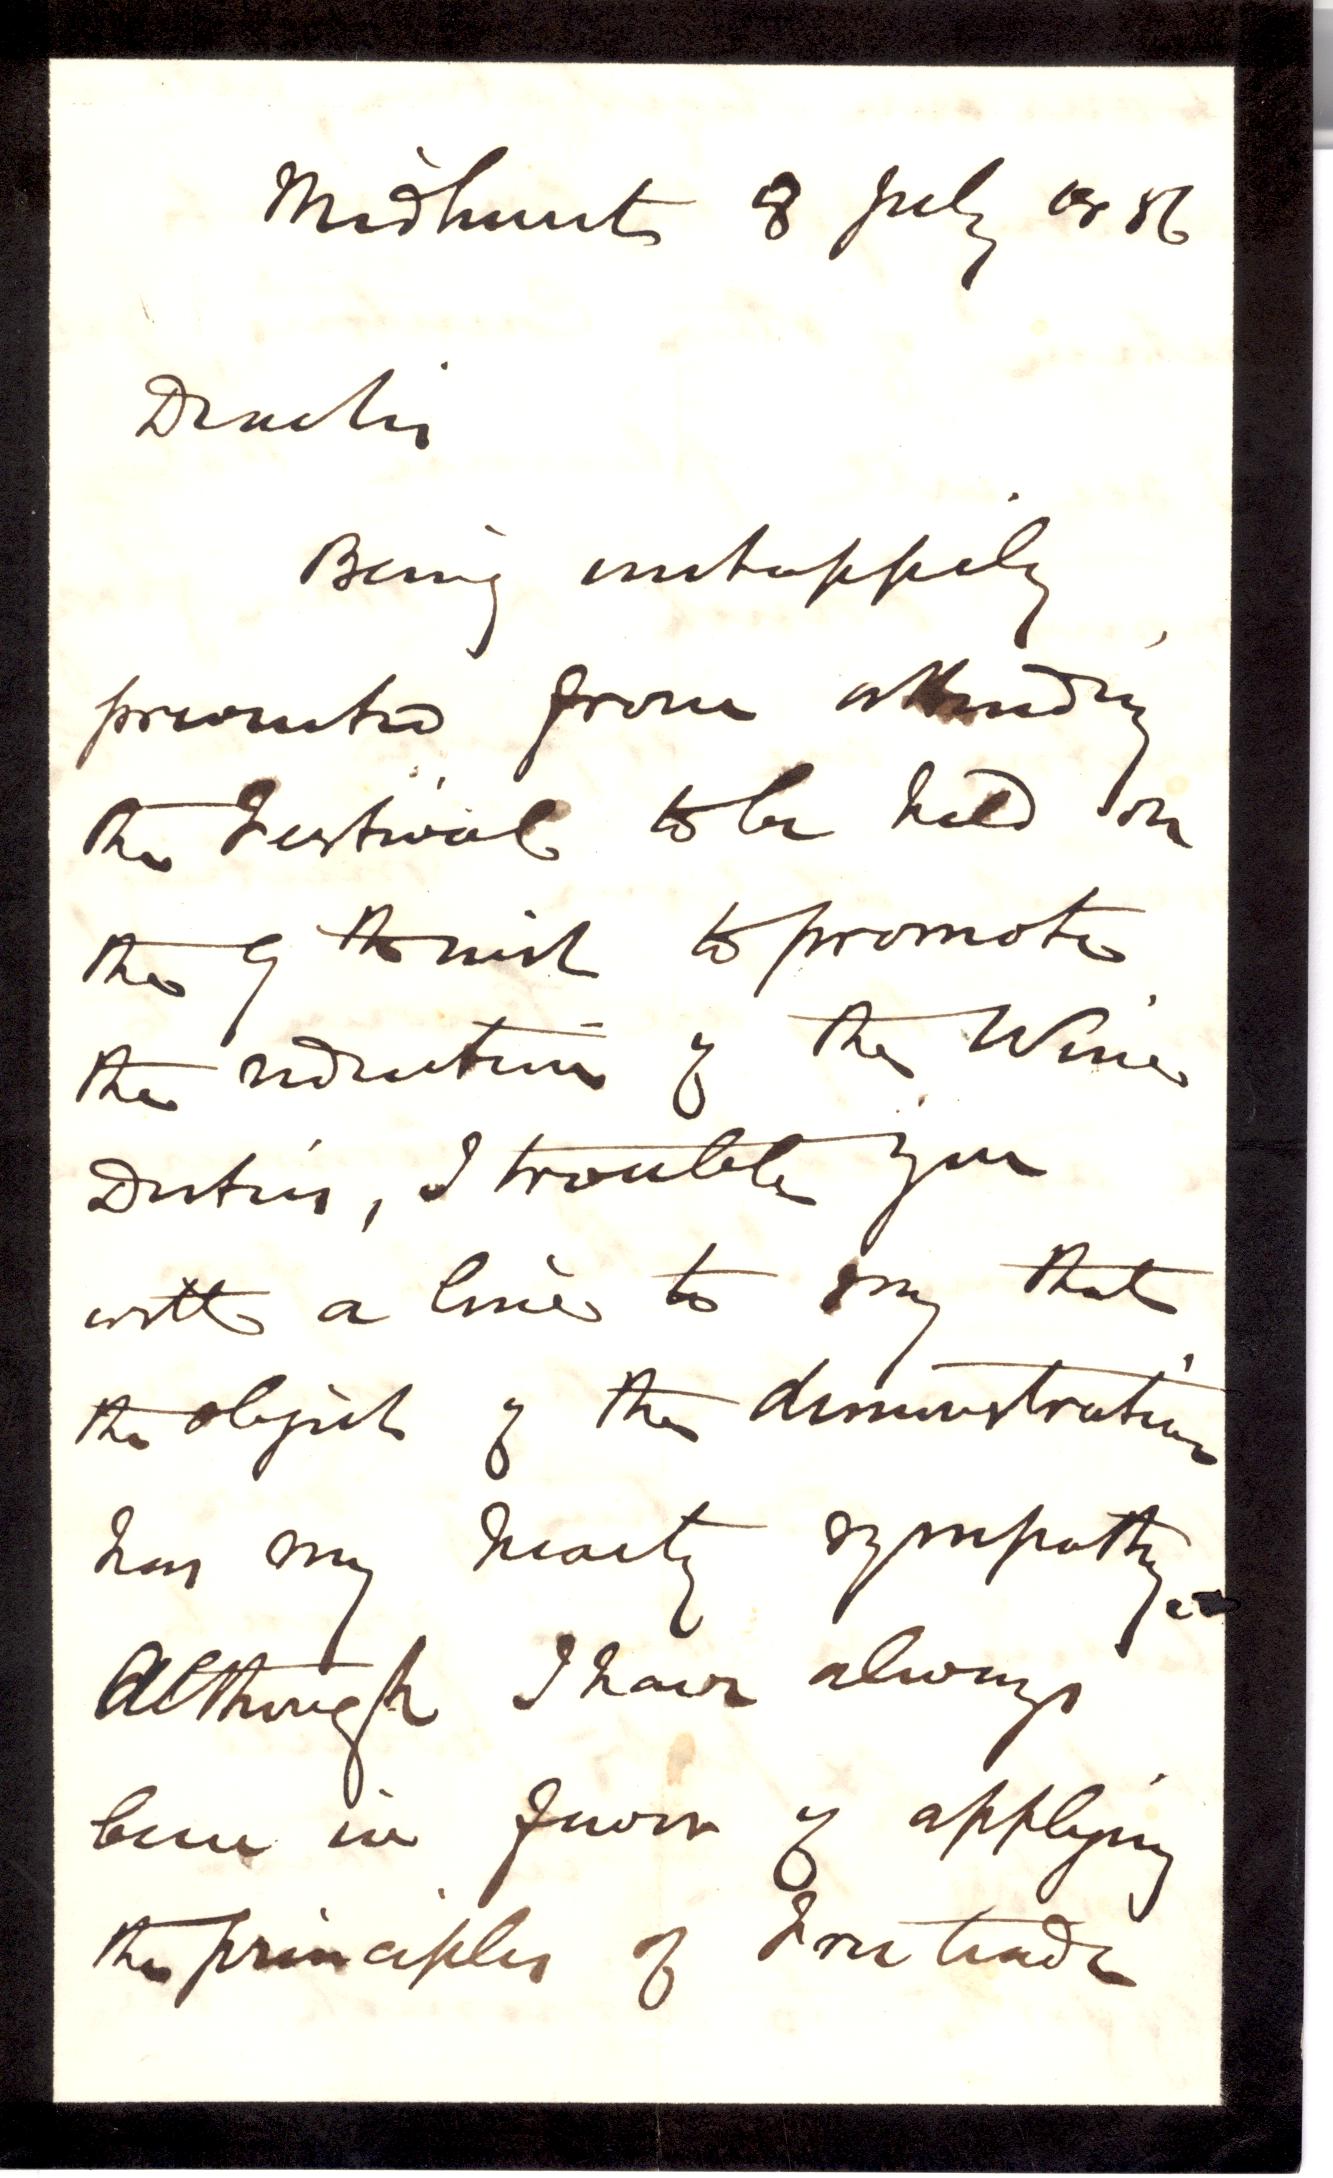 Midhurst 8 July 1856
Dear Sir
Being unhappily
prevented from attending
the Festival to be held on
the 9th inst to promote
the reduction of the Wine
Duties, I trouble you
with a line to say that
the object of the demonstration
has my hearty sympathy.
Although I have always
been in favor of applying
the principles of Free trade